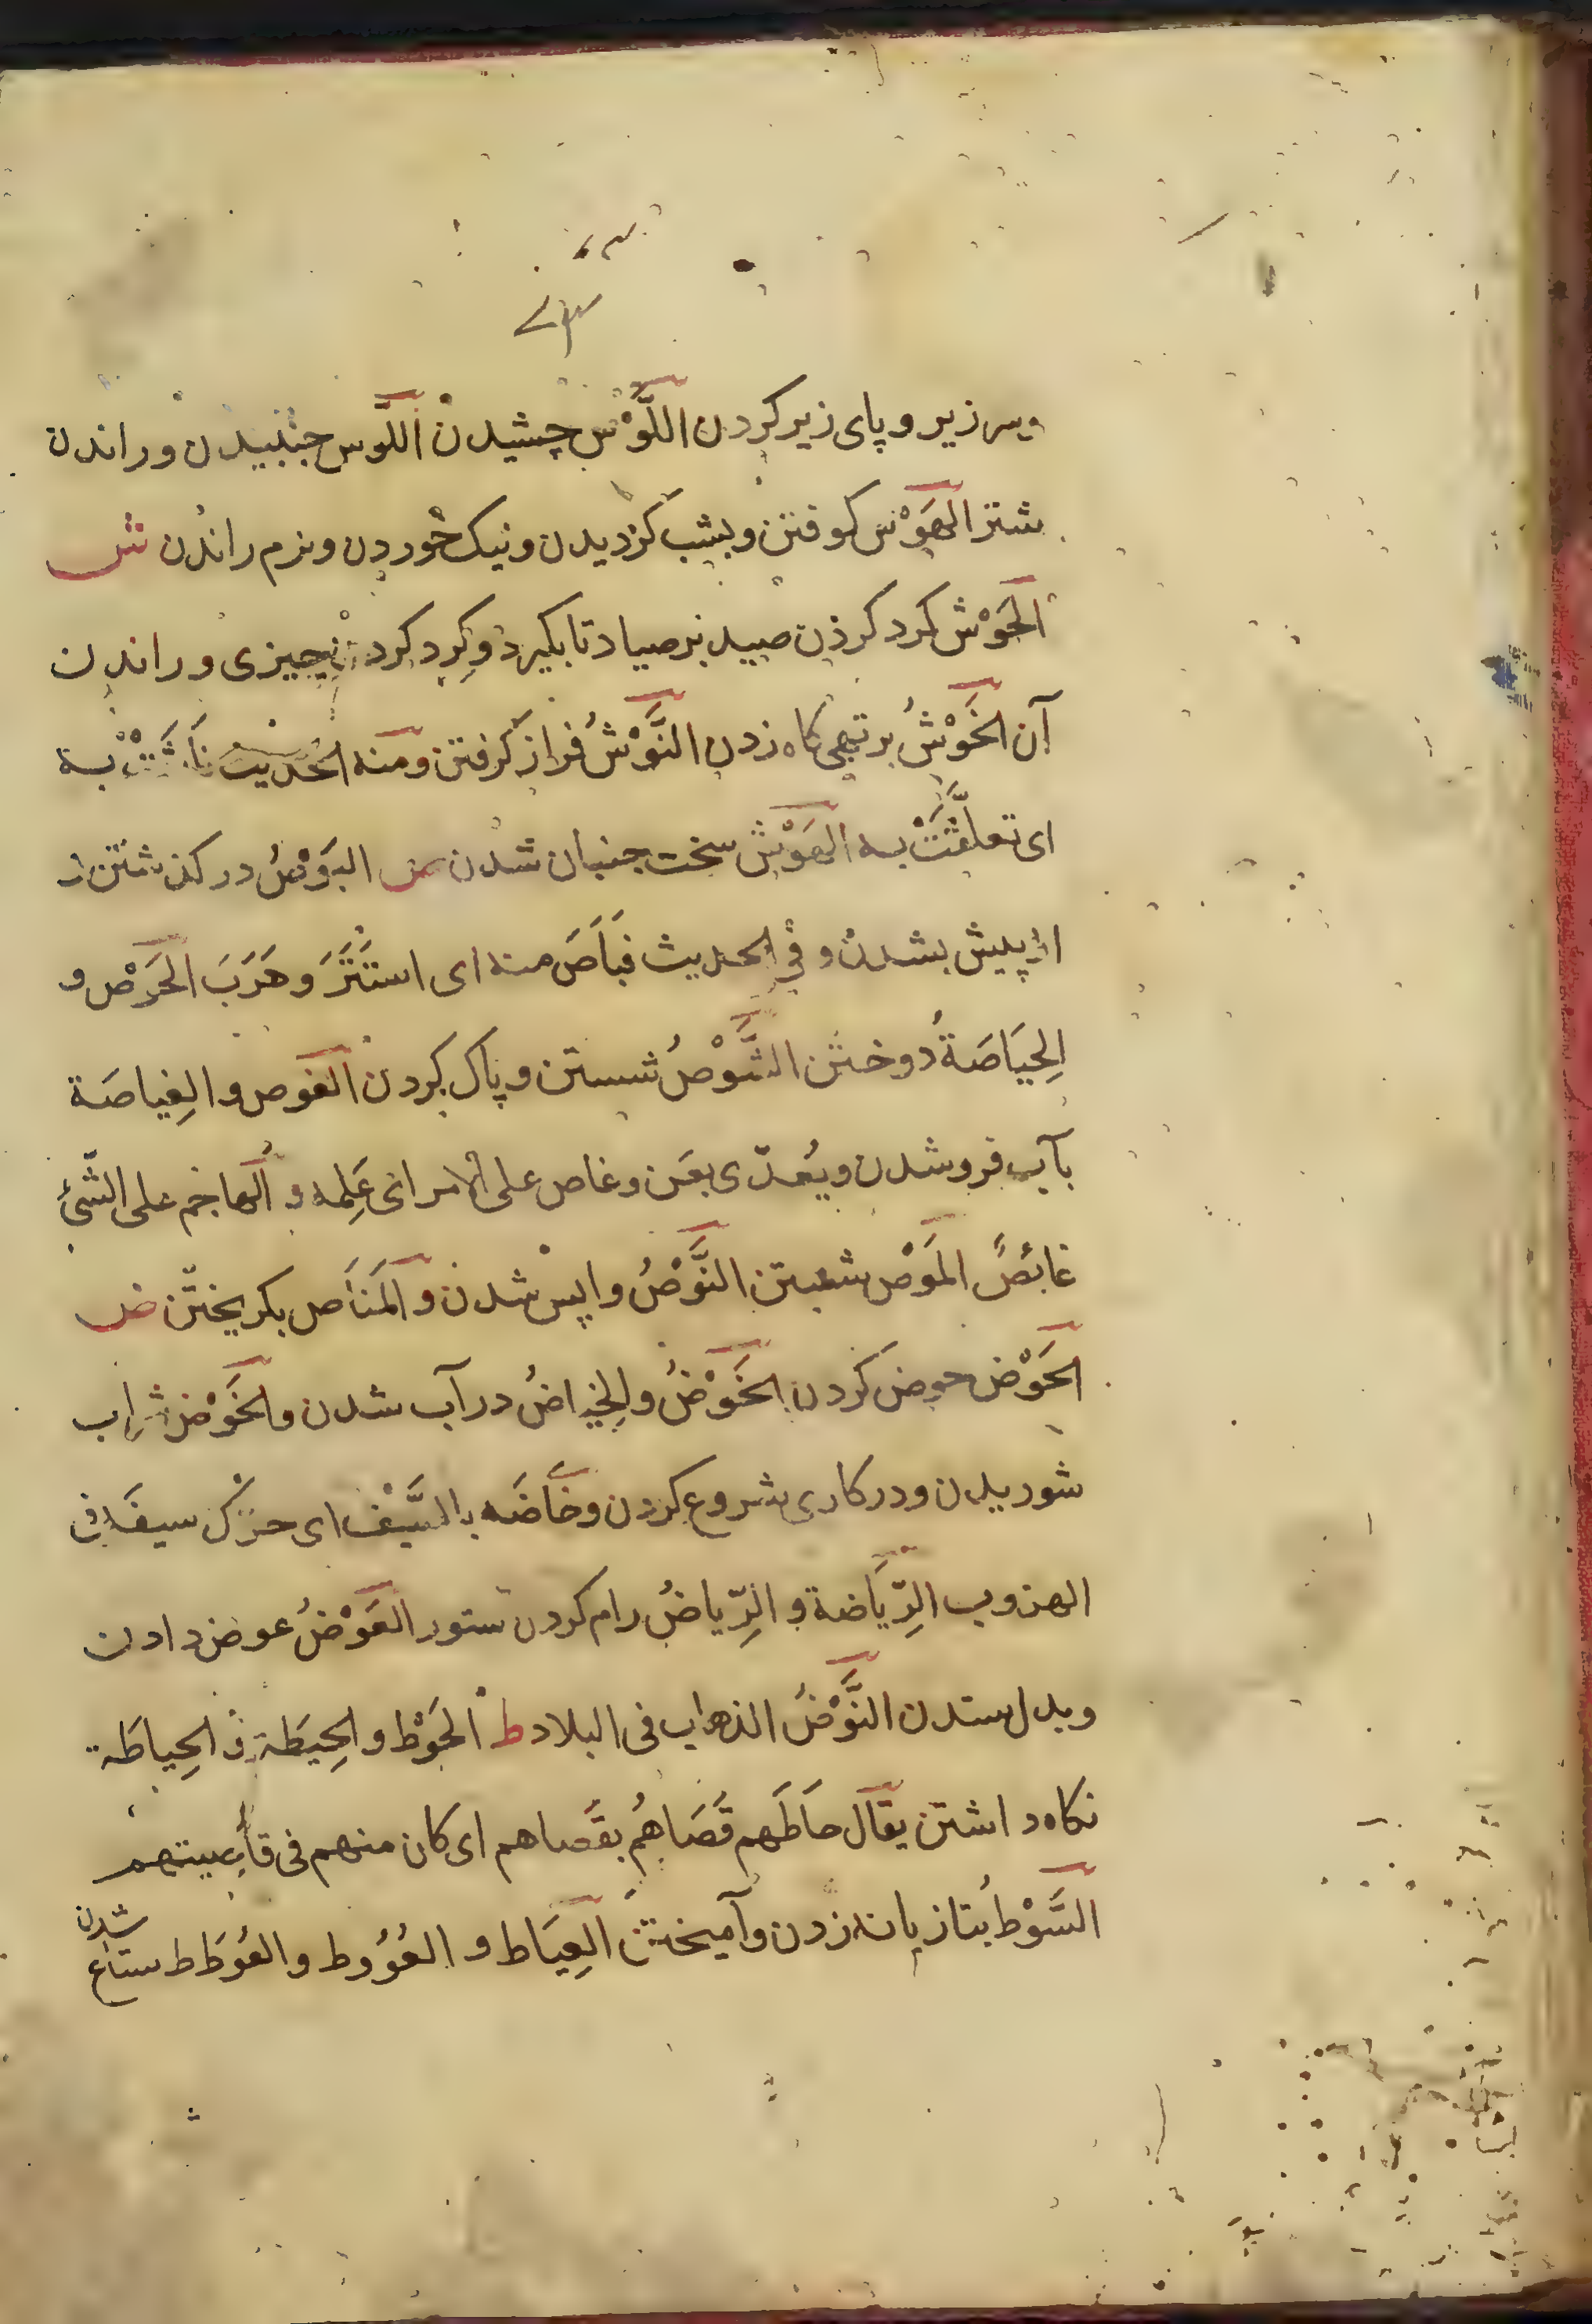 وسر زیر و پای زیر کردن اللَّوْس چشیدن اللَّوس جنبیدن و راندن
شتر الهَوْس کوفتن و بشب کردیدن و نیک خوردن و نرم راندن ش
الحَوْش کرد کردن صید بر صیاد تا بکیرد و کرد کردن چیزی و راندن
آن الخَوْشُ بر تهی کاه زدن النَّوْشُ فراز کرفتن ومنه الحدیث نَاشَتْ به
ای تعلقَّتْ به الهَوْش سخت جنبان شدن ص البَوْصُ در کذشتن و
از پیش بشدن و فی الحدیث فبَاصَ منه ای استَتَرَ وهَرَبَ الحَوْص و
الحِیَاصَةُ دوختن الشَّوْصُ شستن و پاک کردن الغوص و الغِیاصَة
بآب فرو شدن و یُعدّی بعَن و غاص علی الامر ای عَلِمه و الهاجم علی الشّیٔ
غائِصٌ المَوْص شستن النَّوْصُ واپس شدن و المَنَاص بکریختن ض
الحَوْض حوض کردن الخَوْضُ والخِیاضُ در آب شدن والخَوْض شراب
شوریدن و در کاری شروع کردن وخَاضَه بالسَّیْف ای حرّک سیفَه فی
المضروب الرِّیَاضة و الرِّیاضُ رام کردن ستور العَوْضُ عوض دادن
وبدل ستدن النَّوْضُ الذهاب فی البلاد ط الحَوْط و الحِیطَة و الحِیاطَة
نکاه داشتن یقال حاَطَهم قَصَاهُم بقَصاهم ای کان منهم فی قاصیتهم
السَّوْطُ بتازیانه زدن و آمیختن العِیَاط و العُؤُوط و العُوطَط ستاغ شدن